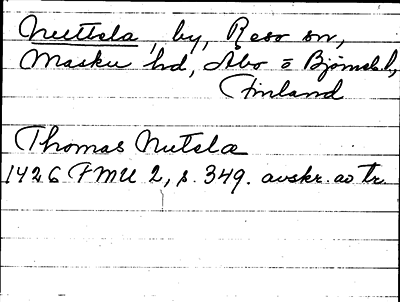 Nuttela, by, Reso sn,
Masku hd, Åbo o Björneb. l.,
Finland
Thomas Nutelæ
1426 FMU 2, s. 349. avskr. av tr.